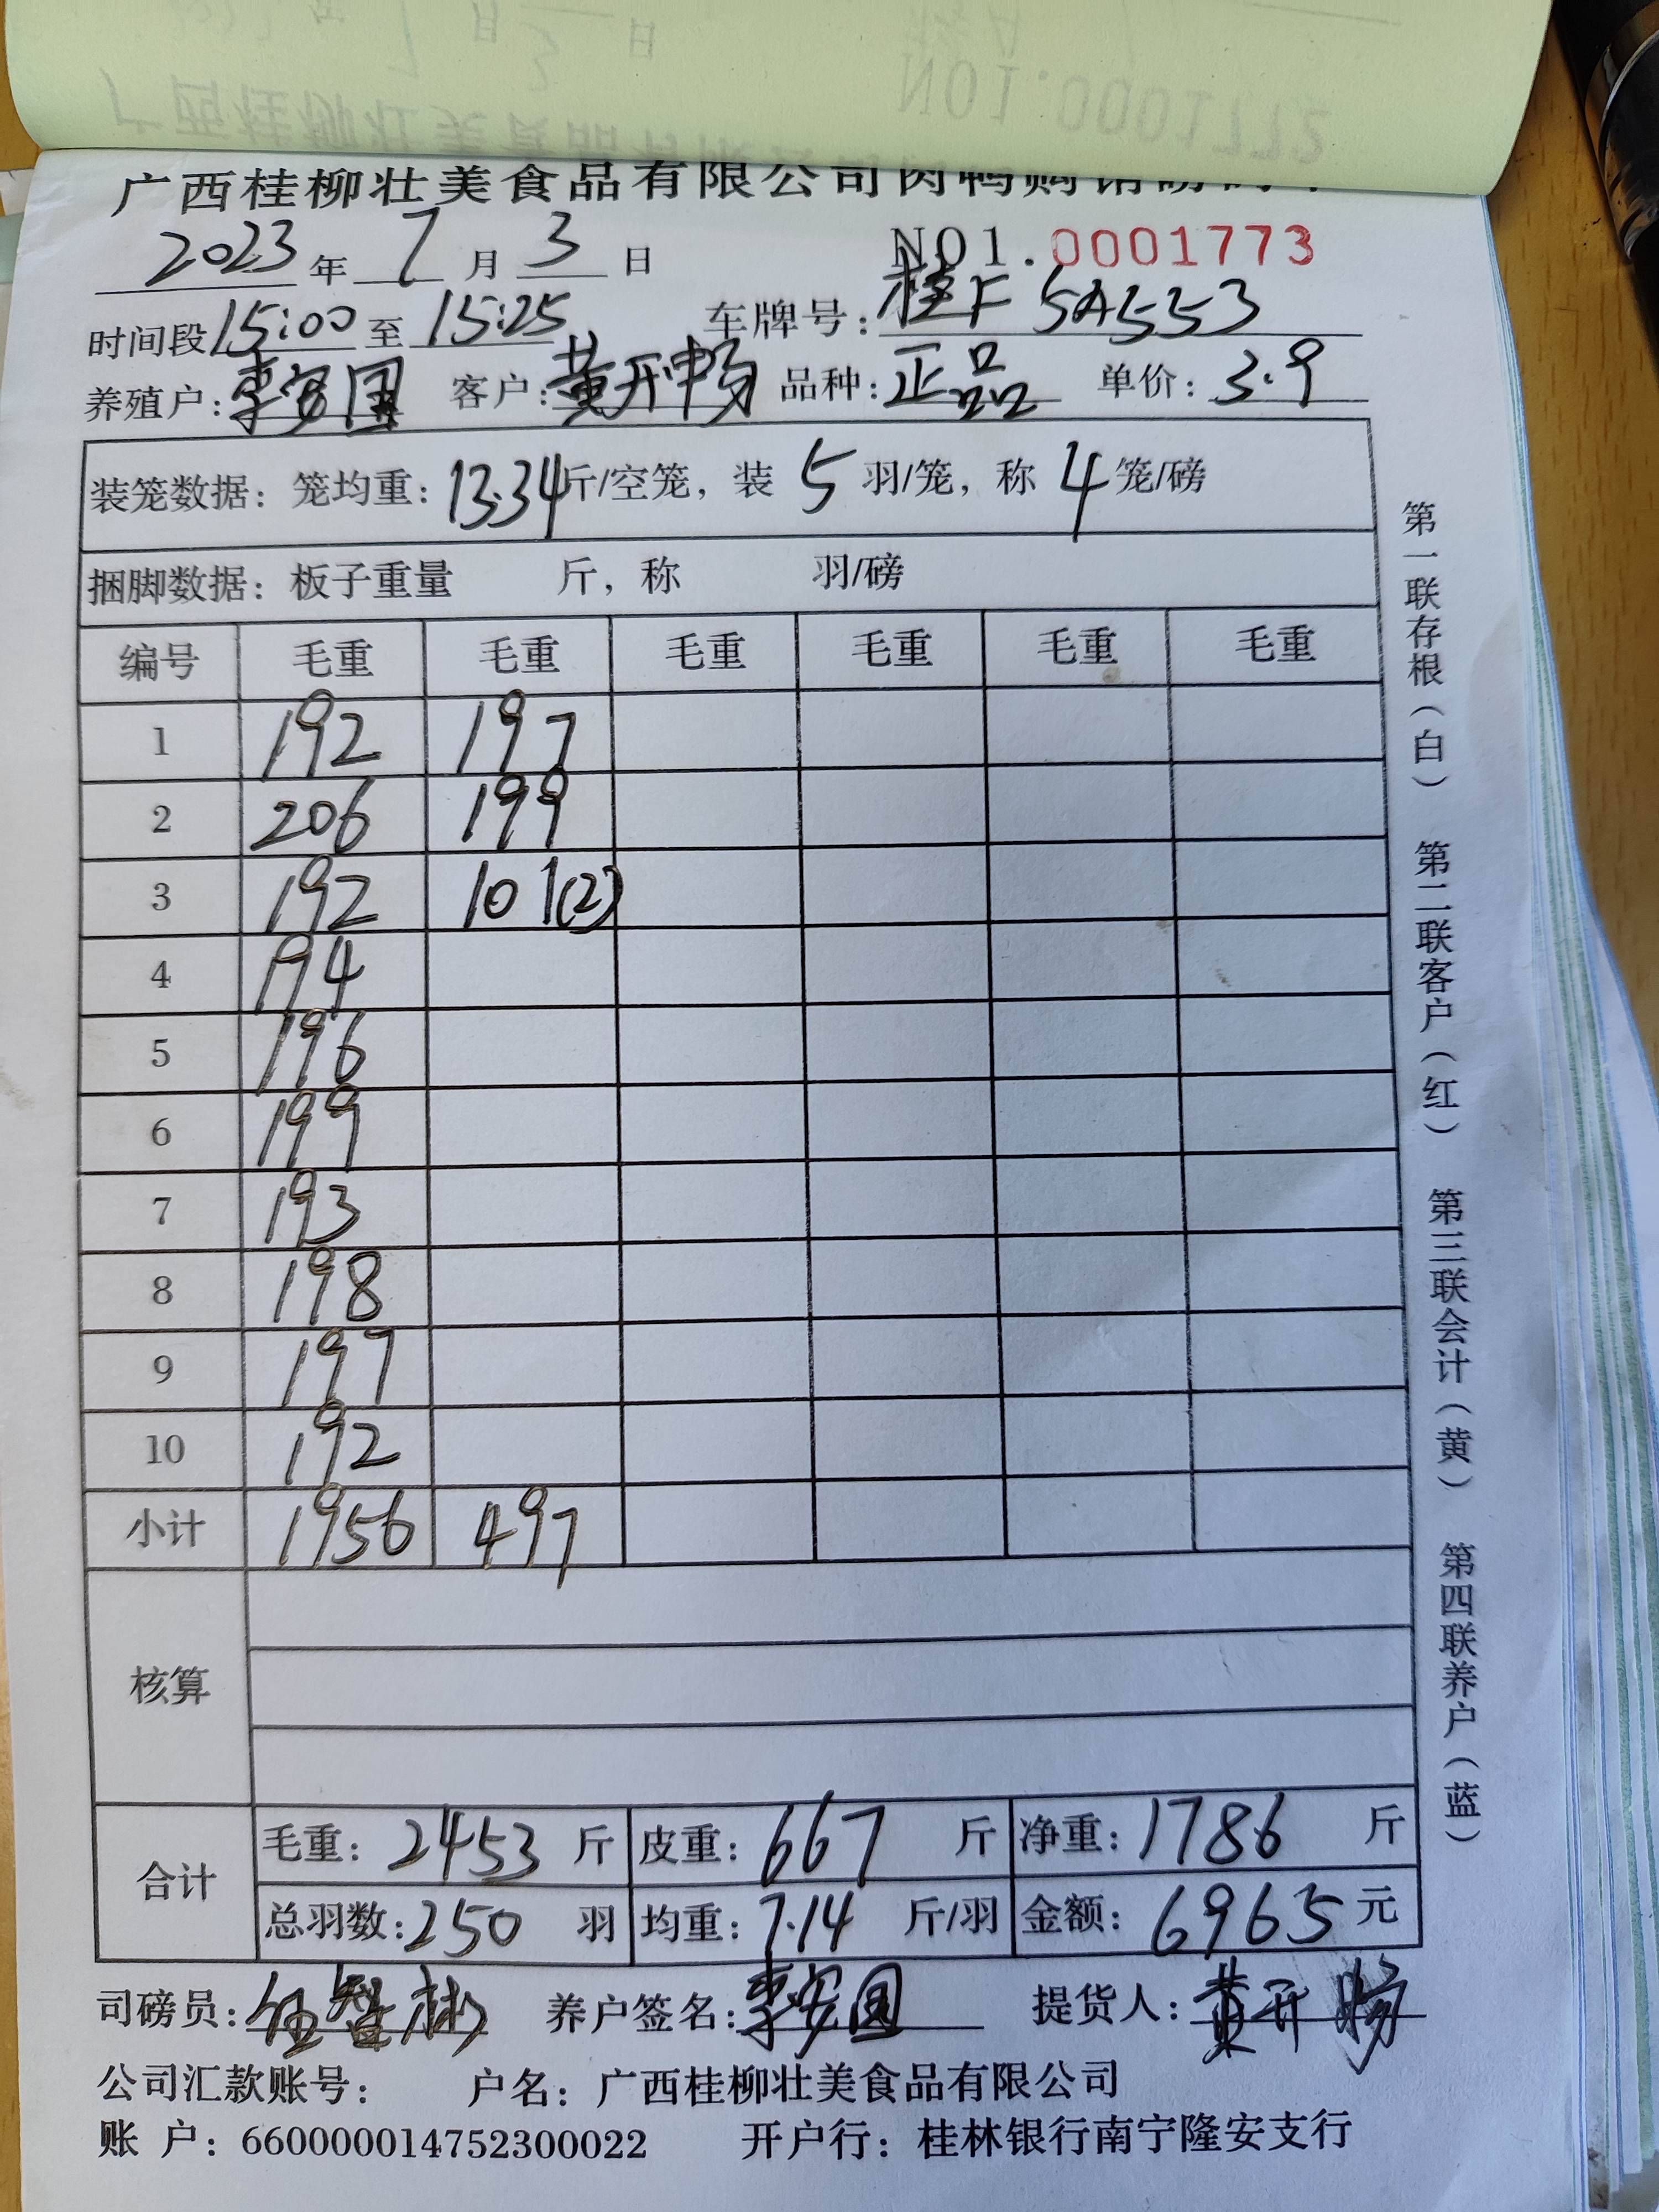 广西桂柳壮美食品有限公司肉鸭购销磅码单
2023年7月3日 NO1.0001773
时间段15:00至15:25 车牌号:桂F 5A553
养殖户:李安国 客户:黄开畅 品种:正品 单价:3.9
装笼数据:笼均重:13.34斤/空笼,装5羽/笼,称4笼/磅
捆脚数据:板子重量 斤,称 羽/磅
编号 毛重 毛重 毛重 毛重 毛重 毛重
1 192 197
2 206 199
3 192 101(2)
4 194
5 196
6 199
7 193
8 198
9 197
10 192
小计 1956 497
核算
合计 毛重:2453斤 皮重:667斤 净重:1786斤
总羽数:250羽 均重:7.14斤/羽 金额:6965元
司磅员:伍智彬 养户签名:李安国 提货人:黄开畅
公司汇款账号: 户名:广西桂柳壮美食品有限公司
账 户:660000014752300022 开户行:桂林银行南宁隆安支行
第一联存根(白) 第二联客户(红) 第三联会计(黄) 第四联养户(蓝)